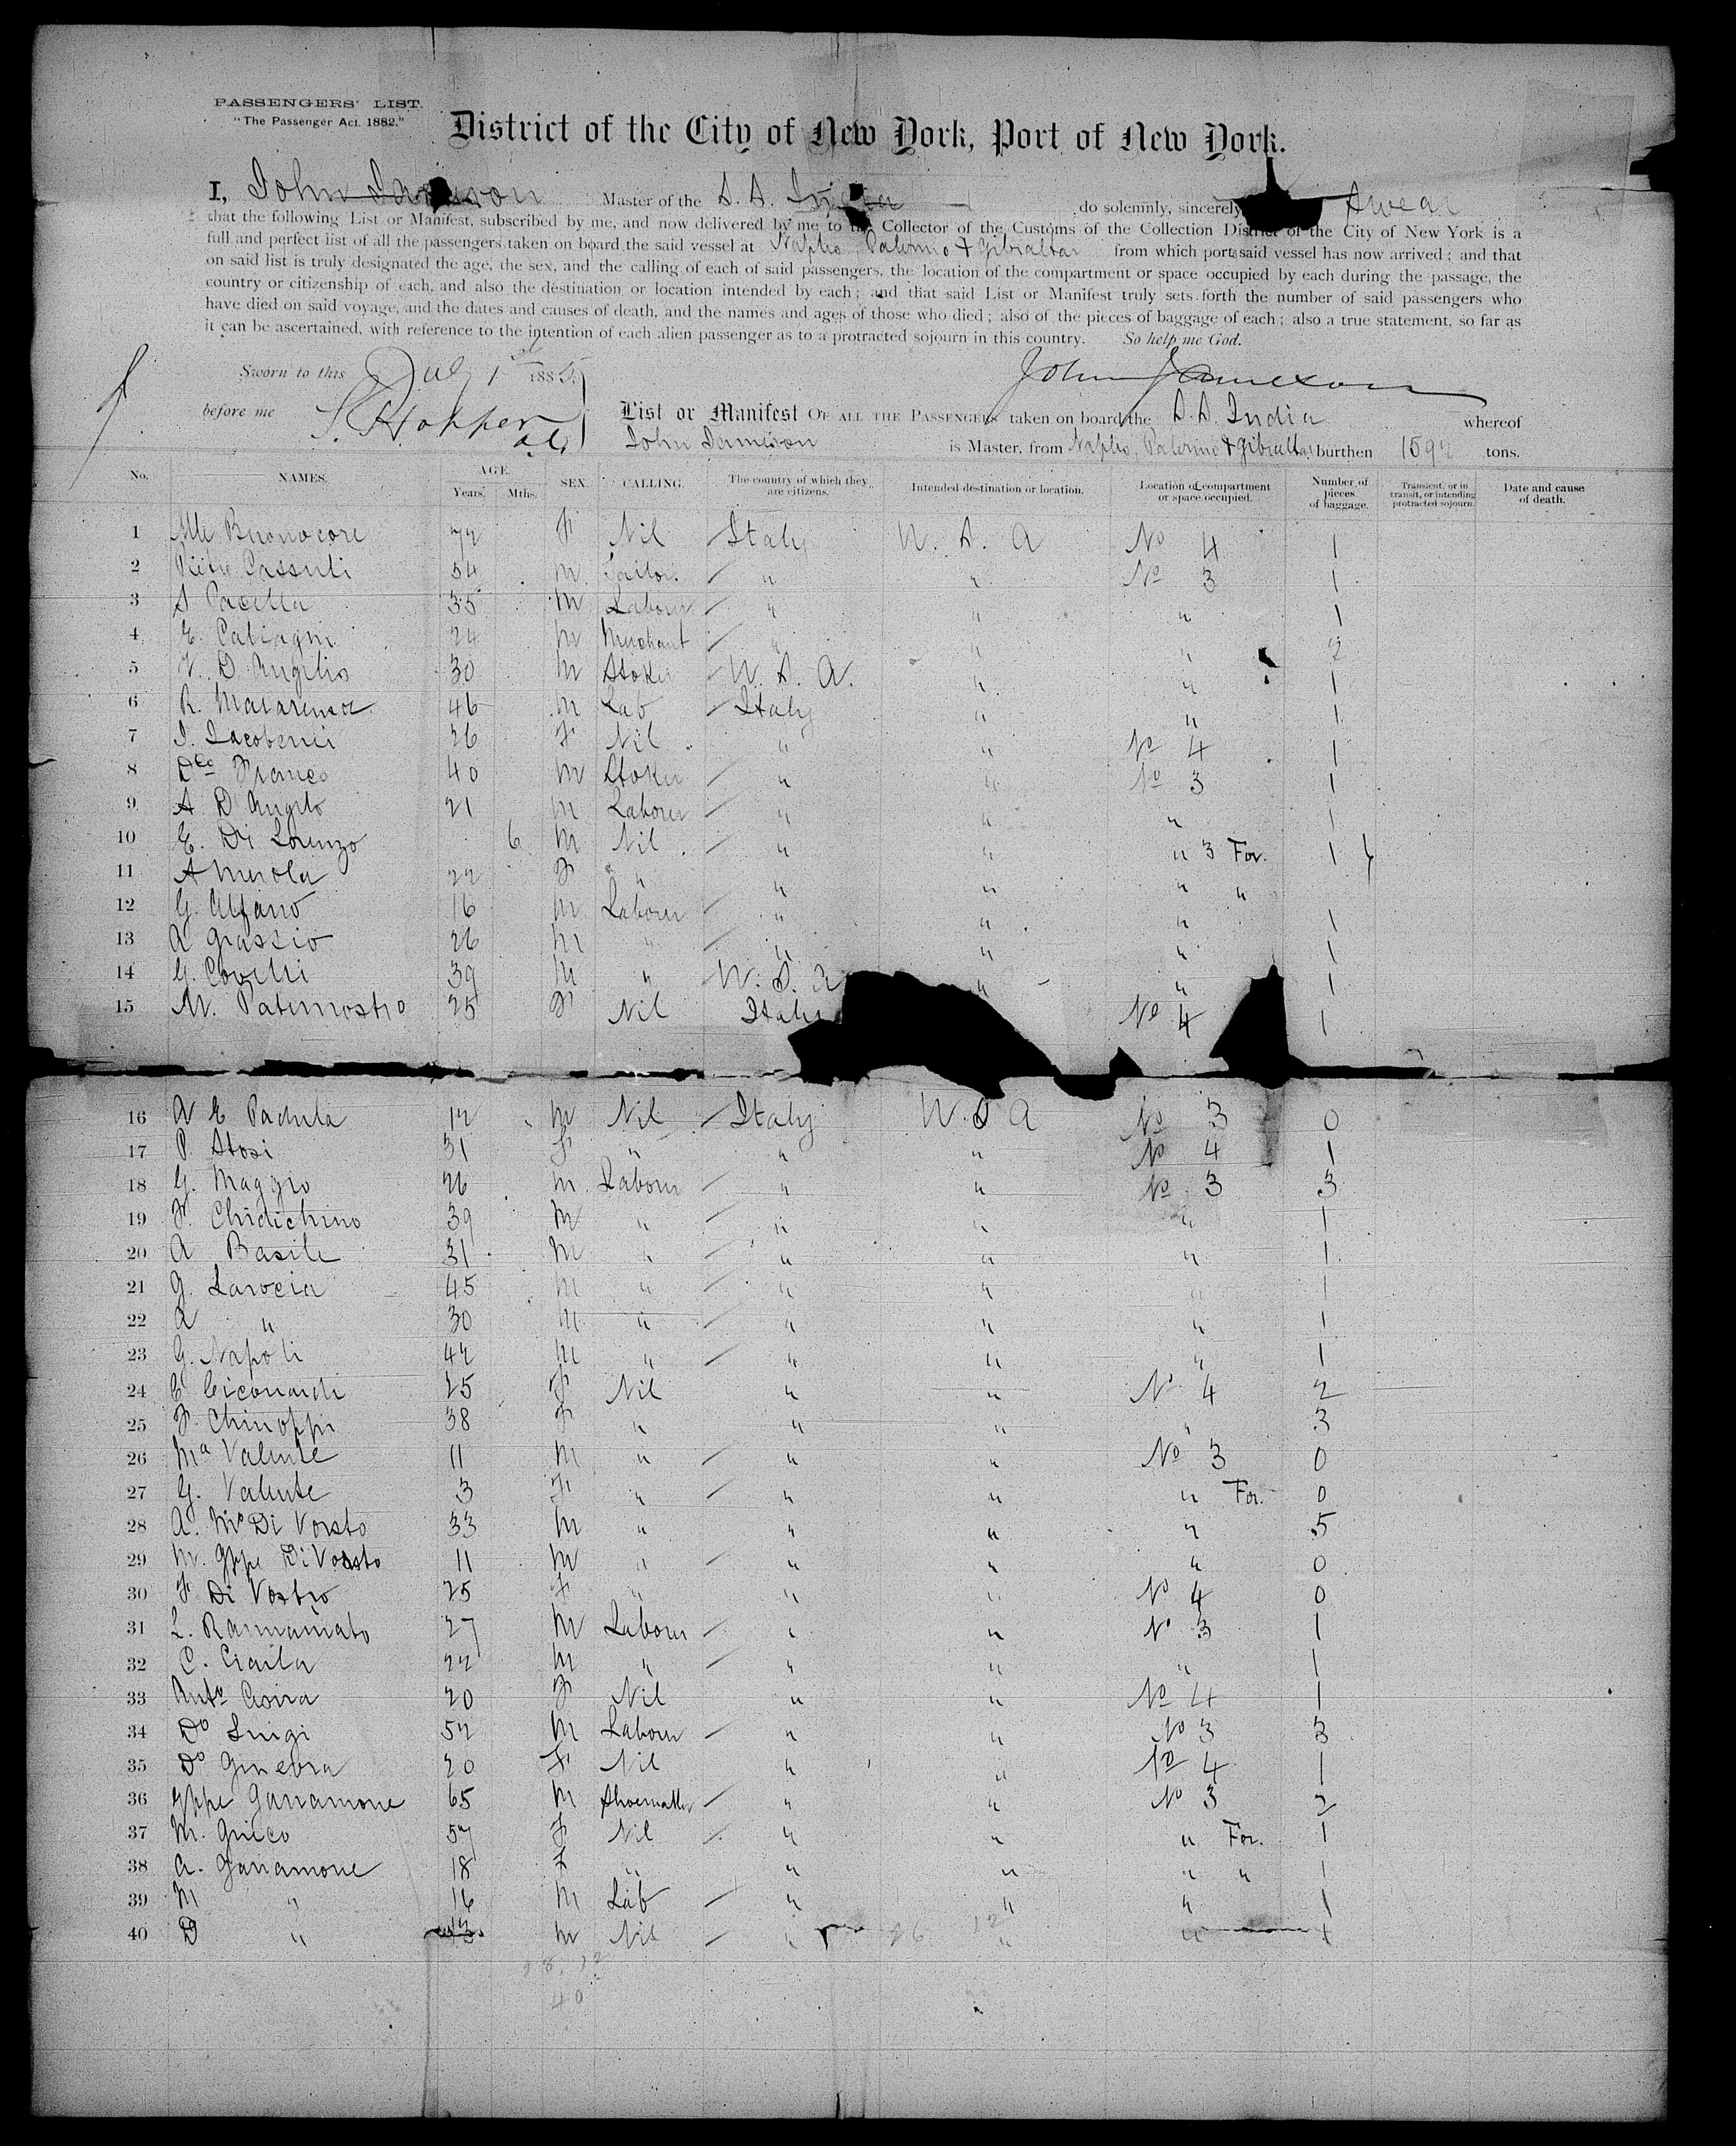 PASSENGERS' LIST.
"The Passenger Act. 1882."
District of the City of New York, Port of New York.
I, John Master of the S. S. India do solemnly, sincerely Swear
that the following List or Manifest, subscribed by me, and now delivered by me to the Collector of the Customs of the Collection District of the City of New York is a
full and perfect list of all the passengers taken on board the said vessel at Naples Palermo & Gibraltar from which port said vessel has now arrived; and that
on said list is truly designated the age, the sex, and the calling of each of said passengers, the location of the compartment or space occupied by each during the passage, the
country or citizenship of each, and also the destination or location intended by each; and that said List or Manifest truly sets forth the number of said passengers who
have died on said voyage, and the dates and causes of death, and the names and ages of those who died; also of the pieces of baggage of each; also a true statement, so far as
it can be ascertained, with reference to the intention of each alien passenger as to a protracted sojourn in this country. So help me God.
Sworn to this July 1 188 John Jamieson
before me List or Manifest OF ALL THE PASSENGERS taken on board the S. S. India whereof
John Jamieson is Master, from Naples, Palermo & Gibraltar burthen 1592 tons.
No. NAMES. AGE. Years. Mths. SEX. CALLING. The country of which they are citizens. Intended destination or location. Location of compartment or space occupied. Number of pieces of baggage. Transient, or in transit, or intending protracted sojourn. Date and cause of death.
1 Buonocore 72 F Nil Italy U. S. A No 4 1
2 Pietro Cassuli 54 M Tailor " " No 3 1
3 S Pacella 35 M Labour " " " 1
4 E. 24 M Merchant " " " 2
5 V. D Angelis 30 M Stoker U. S. A. " " 1
6 R. 46 M Lab Italy " " 1
7 I. 26 F Nil " " No 4 1
8 Franco 40 M Stoker " " No 3 1
9 A D Angelo 21 M Labour " " " 1
10 E. Di Lorenzo 6 M Nil " " " 3 For. 1
11 A Merola 22 F " " " " "
12 G. Alfano 16 M Labour " " " 1
13 A Grassio 26 M " " " " 1
14 G. Covelli 39 M " U. S. A " " 1
15 M. Paternostro 25 F Nil Italy No 4 1
16 A E Padula 12 M Nil Italy U S A No 3 0
17 P Stosi 31 F " " " No 4 1
18 G. Maggio 26 M Labour " " No 3 3
19 F. Chidichimo 39 M " " " " 1
20 A Basile 31 M " " " " 1
21 G. Larocia 45 M " " " " 1
22 A " 30 M " " " " 1
23 G. Napoli 42 M " " " " 1
24 C Ciconardi 25 F Nil " " No 4 2
25 F. Chinoppi 38 F " " " " 3
26 Ma Valente 11 M " " " No 3 0
27 G. Valente 3 F " " " " For. 0
28 A. Mo Di Vorsto 33 M " " " " 5
29 M. Gppe Di Vorsto 11 M " " " " 0
30 F Di Vostro 25 F " " " No 4 0
31 L. 27 M Labour " " No 3 1
32 C. Ciarla 22 M " " " " 1
33 Anto 20 F Nil " " No 4 1
34 Do Luigi 52 M Labour " " No 3 3
35 Do Ginevra 20 F Nil " " No 4 1
36 Gppe Garramone 65 M Shoemaker " " No 3 2
37 M. Grieco 57 F Nil " " " For. 1
38 A. Garramone 18 F " " " " " 1
39 M " 16 M Lab " " " 1
40 D " 13 M Nil " " " 1
26 12
28. 12
40